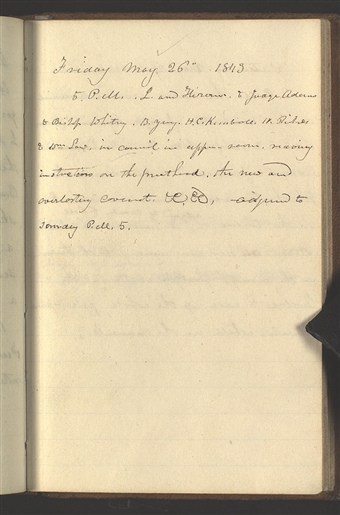 Friday May 26th 1843
5 P.M. . J. and Hiram. & Judge Adams
& Bishop Whitny. B. Yung. H. C. Kimball. W. Richds
& Wm Law. in council in upper room. receivig
instructions on the priesthood. the new and
everlasting covenant. &c &c. adjound to
Sunday P.M. 5.